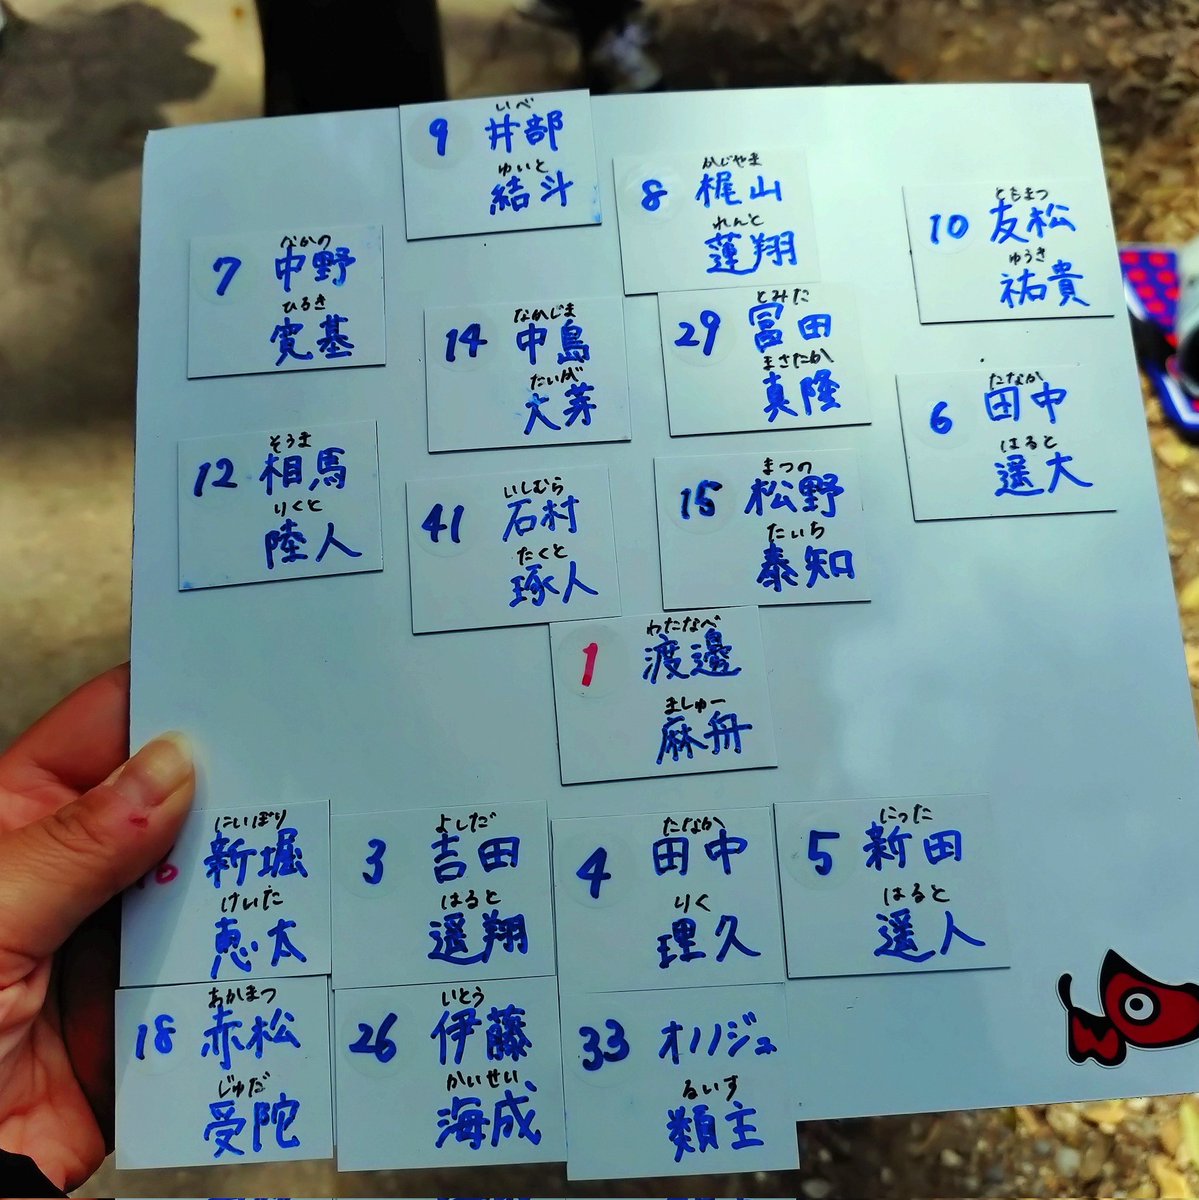 いべ
9 井部
ゆいと
結斗
かじやま
8 梶山
れんと
蓮翔
ともまつ
10 友松
ゆうき
祐貴
なかの
7 中野
ひろき
寛基
なかじま
14 中島
たいが
大芽
とみた
29 冨田
まさたか
真隆
たなか
6 田中
はると
遥大
そうま
12 相馬
りくと
陸人
いしむら
41 石村
たくと
琢人
まつの
15 松野
たいち
泰知
わたなべ
1 渡邊
ましゅー
麻舟
にいぼり
新堀
けいた
恵太
よしだ
3 吉田
はると
遥翔
たなか
4 田中
りく
理久
にった
5 新田
はると
遥人
あかまつ
18 赤松
じゅだ
受陀
いとう
26 伊藤
かいせい
海成
33 オノノジュ
るいす
類主